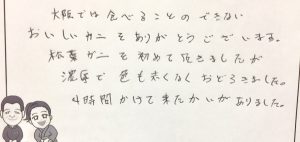 大阪では食べることのできない
おいしいカニをありがとうございます。
松葉ガニを初めて頂きましたが
濃厚で色も赤くなくおどろきました。
4時間かけて来たかいがありました。